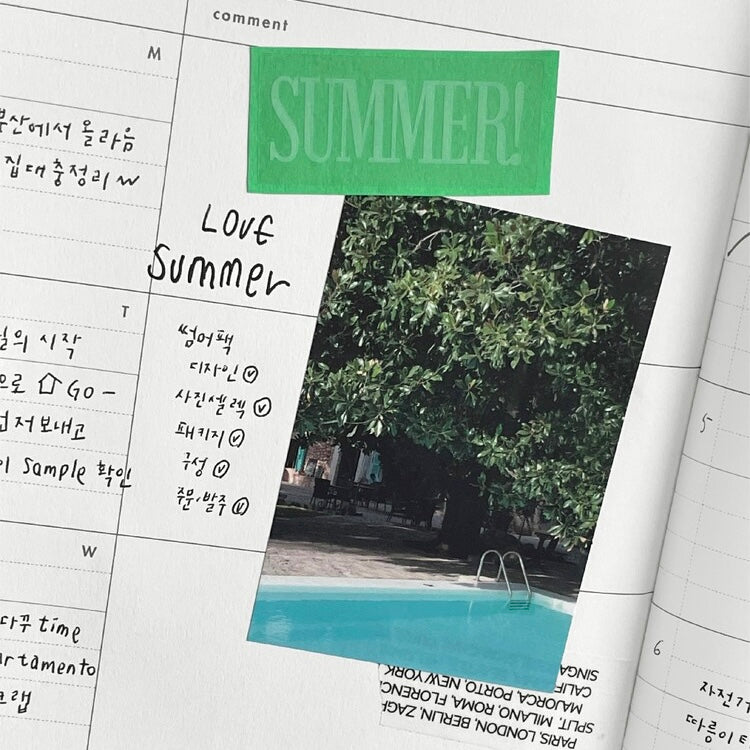 comment
M
SUMMER!
부산에서 올라옴
집대충정리
LOVE
Summer
T
의 시작
으로 Go -
먼저보내고
Sample 확인
썸머팩
디자인
사진셀렉
패키지
구성
주문·발주
W
다꾸 time
artamento
5
6
자전거
따릉이
SINGA
CALIF
MAJORCA, PORTO, NEW YORK
SPLIT, MILANO, ROMA, FLORENC
PARIS, LONDON, BERLIN, ZAG